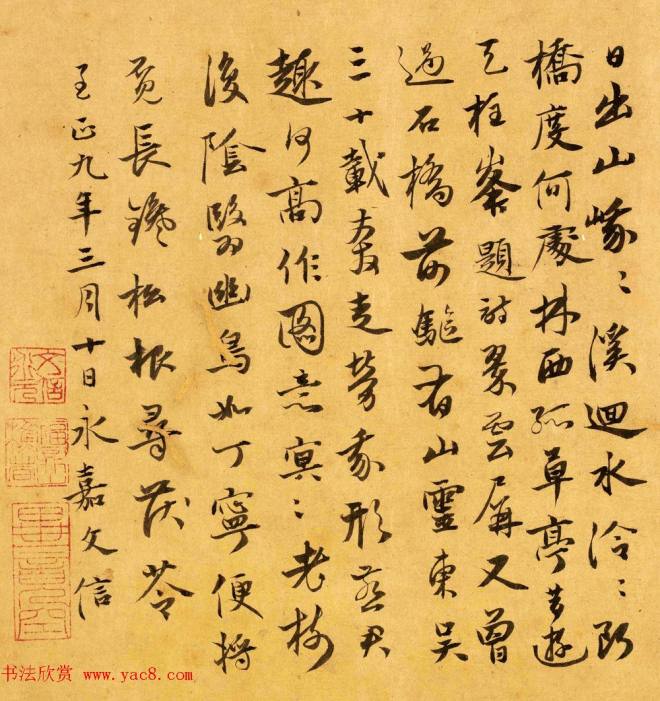 日出山峨〻溪迴水泠〻断
橋度何處林西孤草亭昔遊
天柱峯題詩翠雲屏又曾
過石橋前驅有山靈東吴
三十載奔走勞我形君
趣何高作圖意冥〻老樹
復陰翳幽鳥如丁寧便將
覓長鑱松根尋茯苓
至正九年三月十日永嘉文信
书法欣赏 www.yac8.com